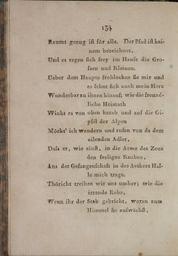 134
Raumt genug ist für alle. Der Pfad ist kei-
nem bezeichnet,
Und es regen sich frey im Hause die Gro-
ßen und Kleinen.
Ueber dem Haupte frohlocken sie mir und
es sehnt sich auch mein Herz
Wunderbar zu ihnen hinauf; wie die freund-
liche Heimath
Winkt es von oben herab und auf die Gi-
pfel der Alpen
Möcht' ich wandern und rufen von da dem
eilenden Adler,
Daß er, wie einst, in die Arme des Zevs
den seeligen Knaben,
Aus der Gefangenschaft in des Aethers Hal-
le mich trage.
Thöricht treiben wir uns umher; wie die
irrende Rebe,
Wenn ihr der Stab gebricht, woran zum
Himmel sie aufwächst,